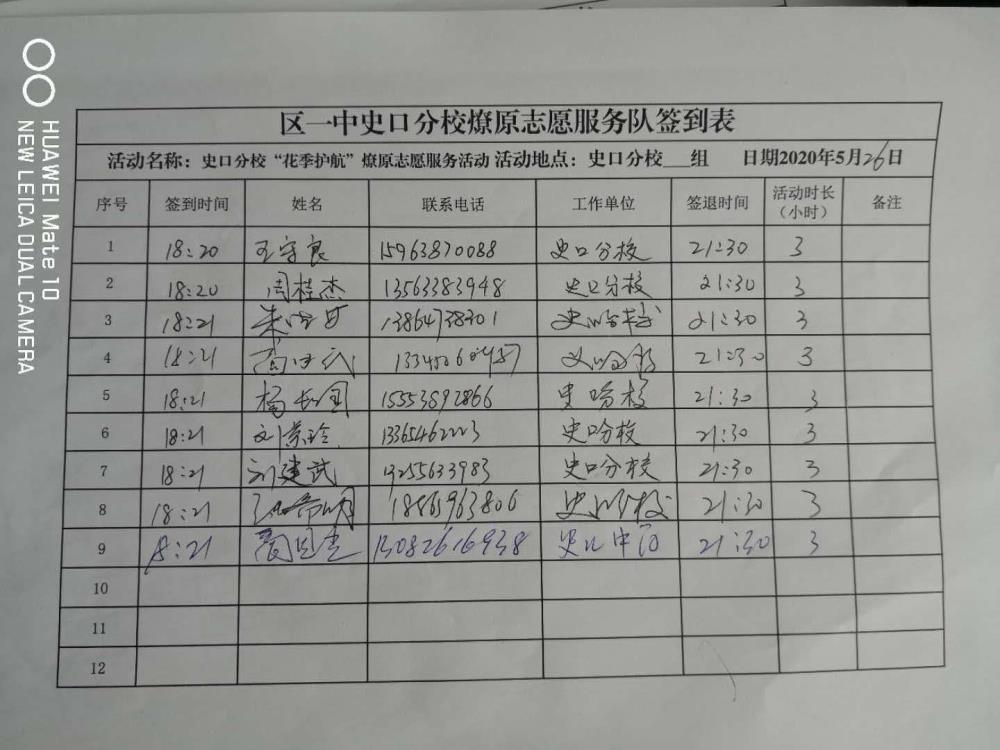 HUAWEI Mate 10
NEW LEICA DUAL CAMERA
区一中史口分校燎原志愿服务队签到表
活动名称：史口分校“花季护航”燎原志愿服务活动 活动地点：史口分校___组 日期2020年5月26日
序号 签到时间 姓名 联系电话 工作单位 签退时间 活动时长（小时） 备注
1 18:20 王守良 15963870088 史口分校 21:30 3
2 18:20 周桂杰 13563383948 史口分校 21:30 3
3 18:21 21:30 3
4 18:21 21:30 3
5 18:21 杨长国 15553892866 史口分校 21:30 3
6 18:21 刘景玲 13365462223 史口分校 21:30 3
7 18:21 刘建武 13255633983 史口分校 21:30 3
8 18:21 史口分校 21:30 3
9 18:21 13082616938 21:30 3
10
11
12